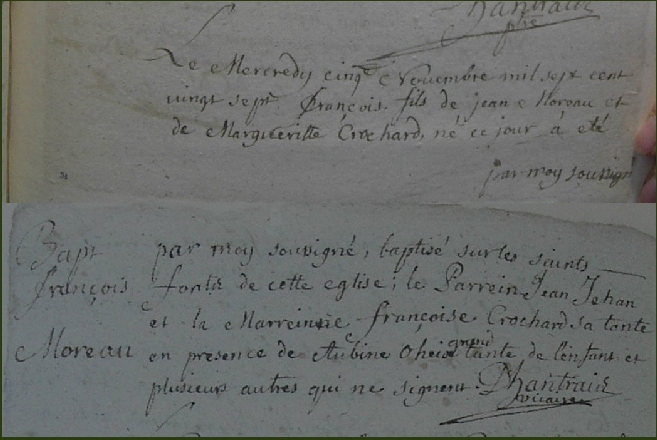 Dhantraiz
ptre
Le Mercredy cinqe Novembre mil sept cent
vingt sept François fils de jean Moreau et
de Margueritte Crochard, né ce jour à eté
par moy souvign
Bapt
françois
Moreau
par moy souvigné, baptisé sur les saints
fonts de cette eglise; le Parrein Jean Jehan
et la Marreinne françoise Crochard sa tante
en presence de Aubine tante de l'enfant et
plusieurs autres qui ne signent. Dhantraiz
vicaire